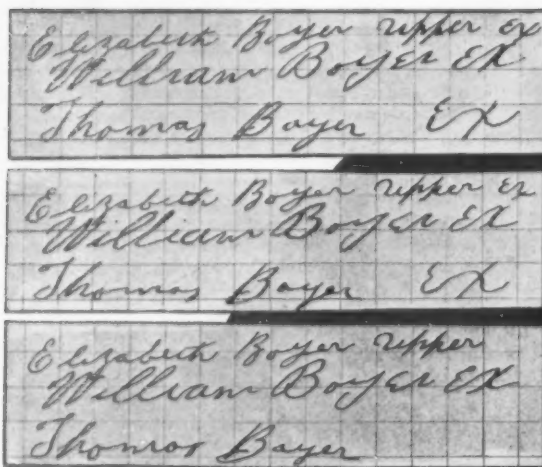 Elizabeth Boyer upper ex
William Boyer EX
Thomas Boyer EX
Elizabeth Boyer upper ex
William Boyer EX
Thomas Boyer EX
Elizabeth Boyer upper
William Boyer EX
Thomas Boyer